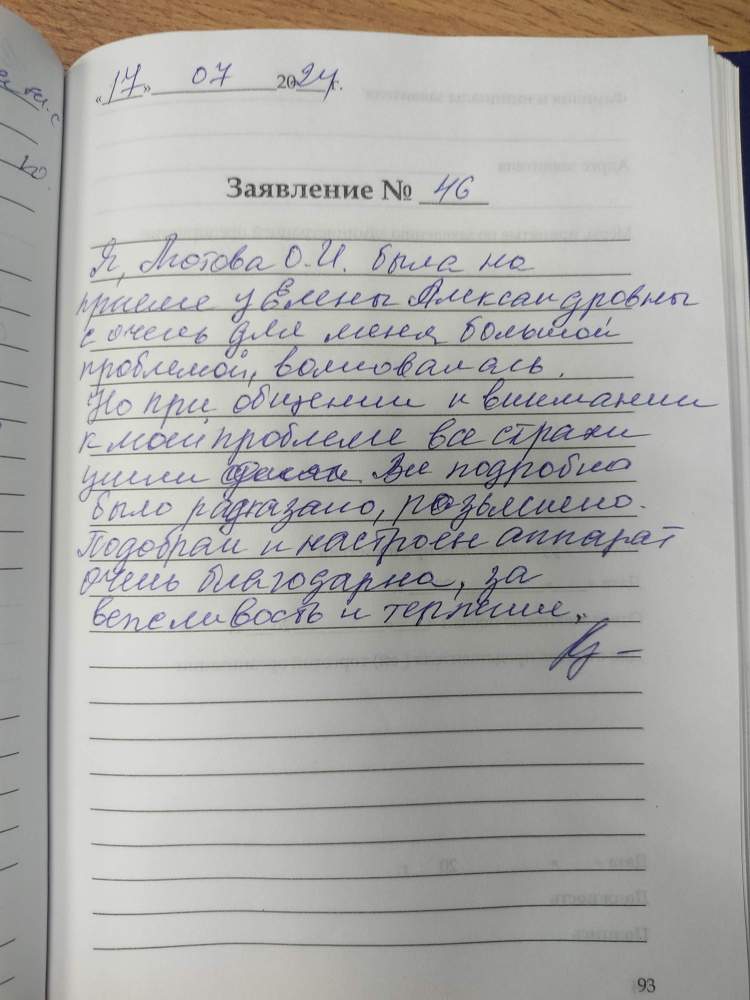 «17» 07 2024г.
Заявление № 46
Я, О.И. была на
приеме у Елены Александровны
с очень для меня большой
проблемой, волновалась.
Но при общении и внимании
к моей проблеме все страхи
ушли Все подробно
было рассказано, розьяснено.
Подобран и настроен аппарат
очень благодарна, за
вежливость и терпение.
93